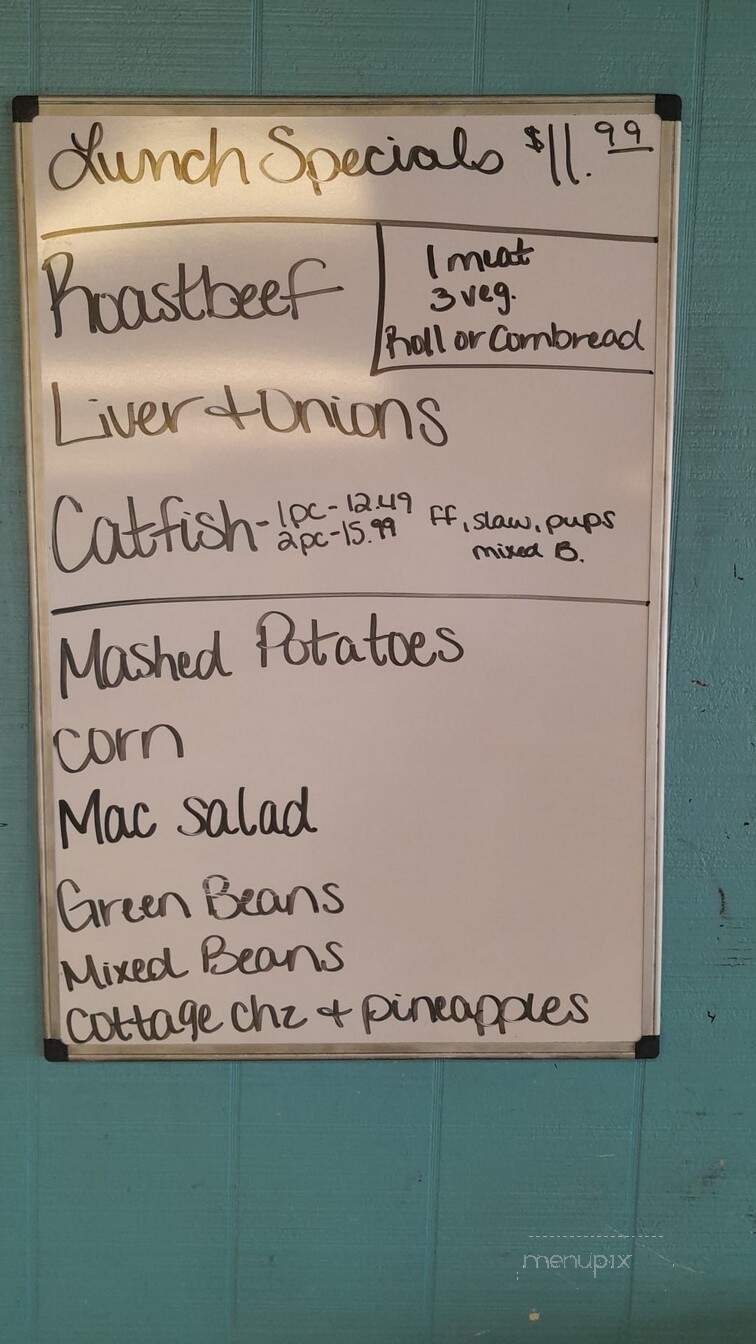 Lunch Specials $11.99
Roastbeef
1 meat
3 veg.
Roll or Cornbread
Liver + Onions
Catfish - 1pc - 12.49
2pc - 15.99
FF, slaw, pups
mixed B.
Mashed Potatoes
corn
Mac salad
Green Beans
Mixed Beans
Cottage chz + pineapples
menupix